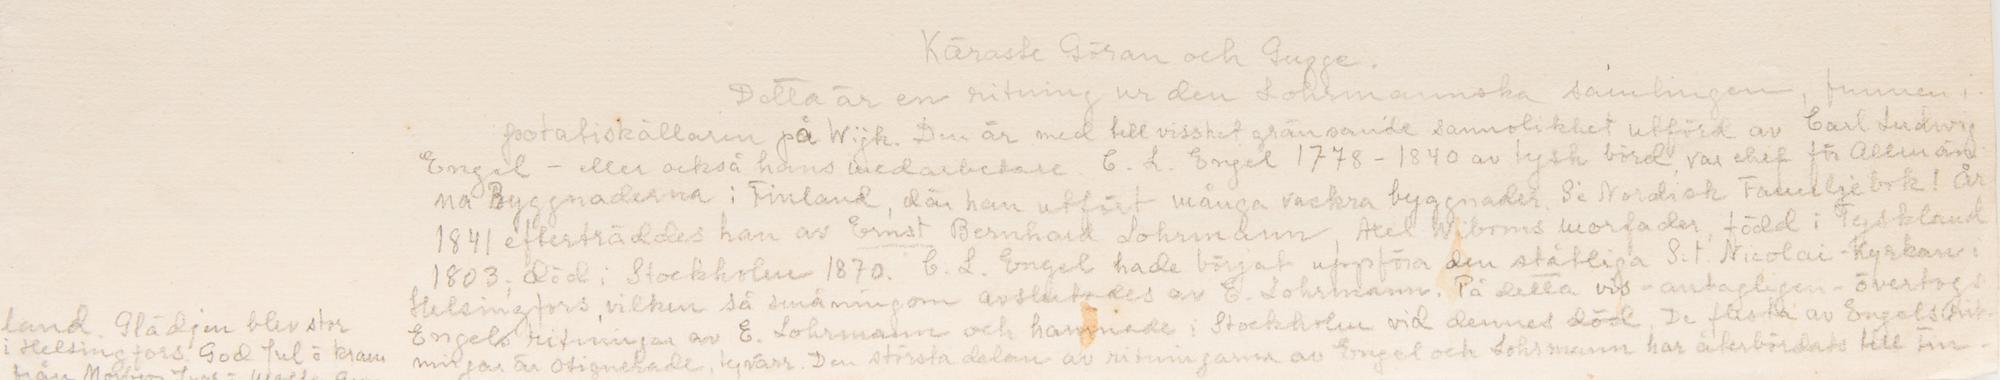 Käraste Göran och Gugge.
Detta är en ritning ur den Lohrmannska samlingen, funnen i
potatiskällaren på Wijk. Den är med till visshet gränsande sannolikhet utförd av Carl Ludwig
Engel – eller också hans medarbetare. C. L. Engel 1778-1840 av tysk börd, var chef för Allmän
na Byggnaderna i Finland, där han utfört många vackra byggnader. Se Nordisk Familjebok! År
1841 efterträddes han av Ernst Bernhard Lohrmann, Axel Wiboms morfader, född i Tyskland
1803, död i Stockholm 1870. C. L. Engel hade börjat uppföra den ståtliga S:t Nicolai-Kyrkan i
Helsingfors, vilken så småningom avslutades av E. Lohrmann. På detta vis - antagligen - övertogs
Engels ritningar av E. Lohrmann och hamnade i Stockholm vid dennes död. De flesta av Engels rit-
ningar är osignerade, tyvärr. Den största delen av ritningarna av Engel och Lohrmann har återbördats till Fin-
land. Glädjen blev stor
i Helsingfors. God Jul o kram
från